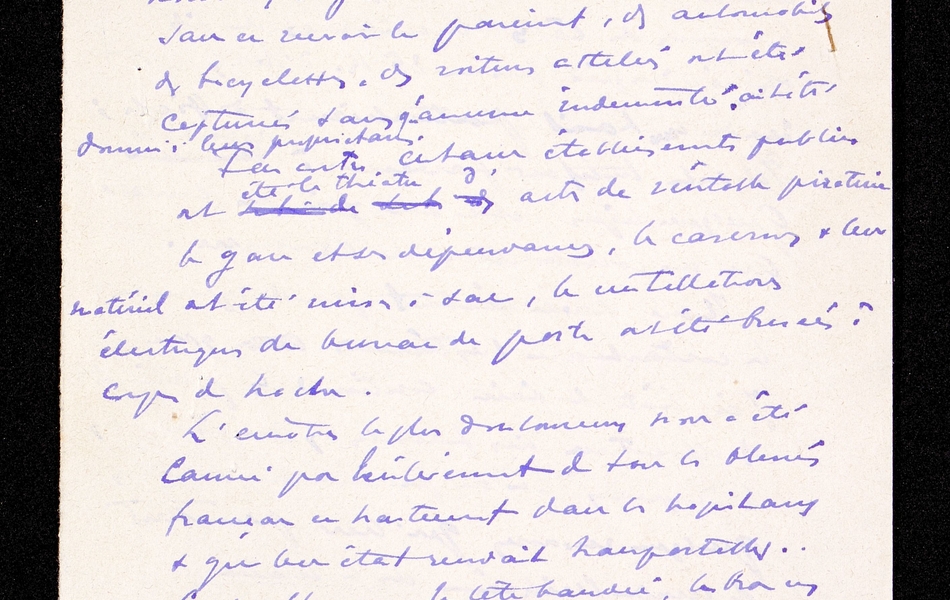 sans en recevoir le paiement, des automobiles
des bicyclettes, des voitures attelées ont été
capturés sans qu'aucune indemnité ait été
donnée à leurs propriétaires.
Par contre certains établissements publics
été le théâtre d'
ont actes de véritable piraterie
la gare et ses dépendances, les casernes & leur
matériel ont été mises à sac, les installations
électriques du bureau de poste ont été brisées à
coups de hache.
L'émotion la plus douloureuse nous a été
causée par l'enlèvement de tous les blessés
français en traitement dans les hôpitaux
& que leur état rendait transportables..
la tête bandée, les bras en